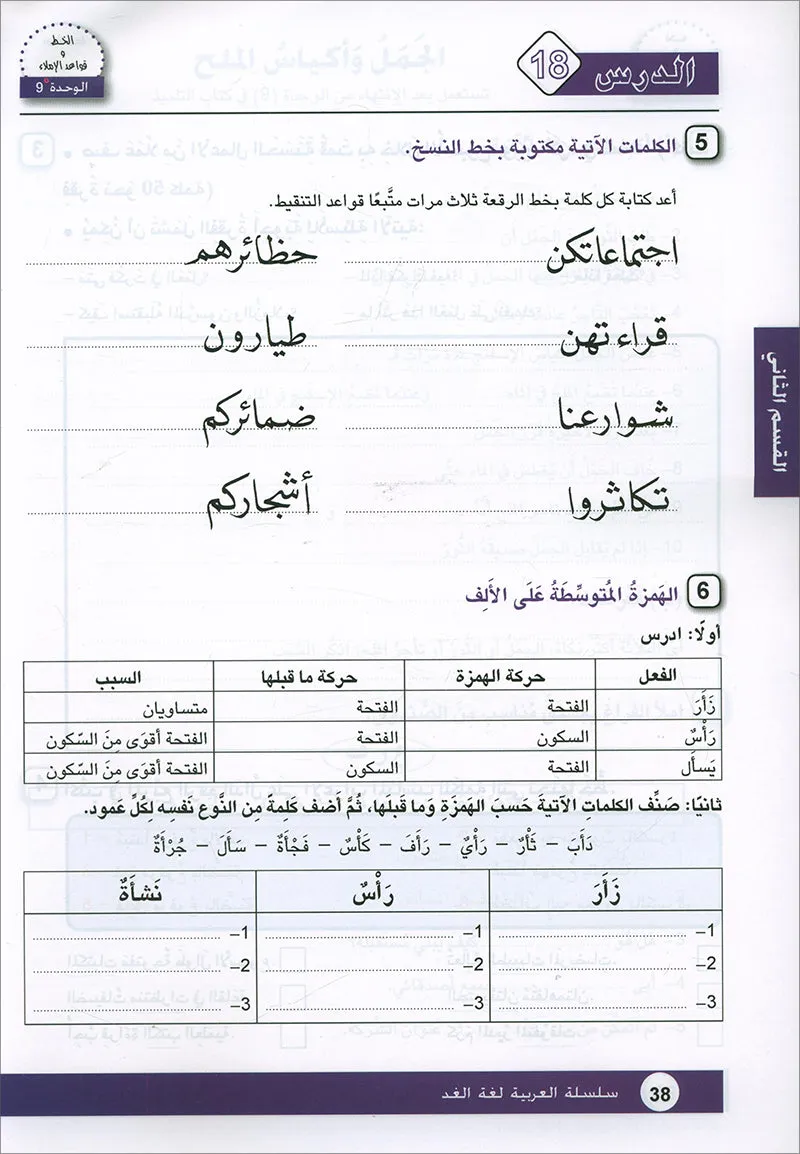 الخط
و
قواعد الإملاء
الوحدة 9
الدرس 18
5 الكلمات الآتية مكتوبة بخط النسخ.
أعد كتابة كل كلمة بخط الرقعة ثلاث مرات متَّبعًا قواعد التنقيط.
اجتماعاتكن حظائرهم
قراءتهن طيارون
شوارعنا ضمائركم
تكاثروا أشجاركم
القسم الثاني
6 الهَمزةُ المُتوسِّطَةُ عَلَى الأَلِف
أولًا: ادرس
الفعل حركة الهمزة حركة ما قبلها السبب
زَأَرَ الفتحة الفتحة متساويان
رَأْسٌ السكون الفتحة الفتحة أقوَى مِنَ السّكون
يَسأَل الفتحة السكون الفتحة أقوَى مِنَ السّكون
ثانيًا: صَنِّف الكلماتِ الآتيةَ حَسبَ الهَمزَةِ وَما قبلَها، ثُمَّ أَضف كَلِمةً مِن النَّوع نَفسِه لِكُلِّ عَمود.
دَأَبَ – ثَأْرٌ – رَأْيٌ – رَأَفَ – كَأْسٌ – فَجْأَةٌ – سَأَلَ – جُرْأَةٌ
زَأَرَ رَأْسٌ نَشأَةٌ
1– 1– 1–
2– 2– 2–
3– 3– 3–
38 سلسلة العربية لغة الغد